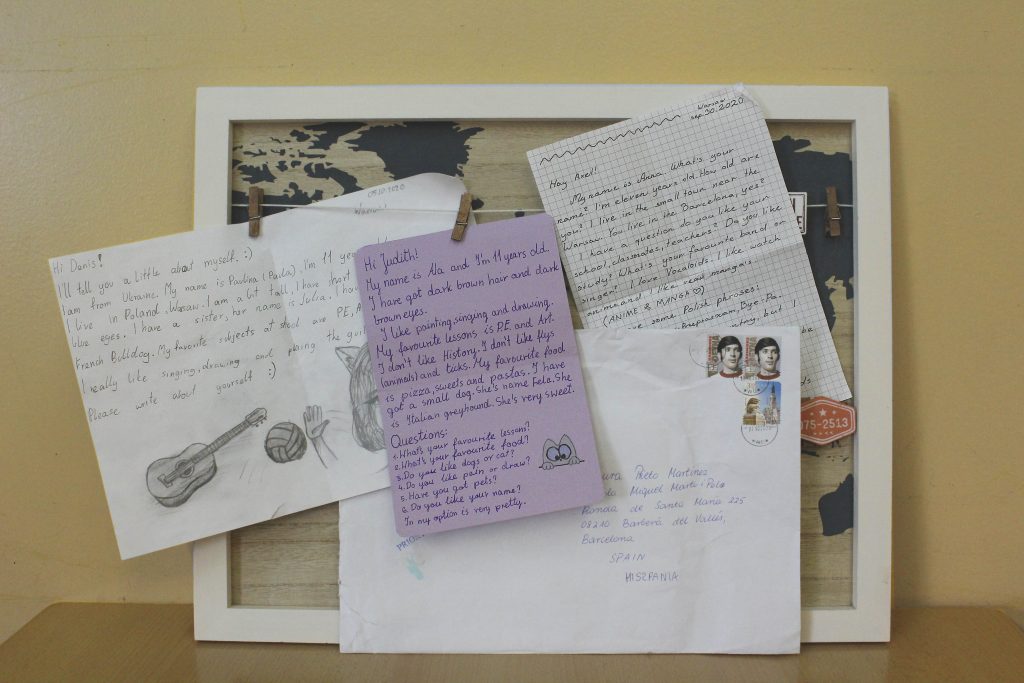 05.10.2020
Hi Denis!
I'll tell you a little about myself. :)
I am from Ukraine. My name is Paulina (Paula). I'm 11
I live in Poland, Warsaw. I am a bit tall, I have short
blue eyes. I have a sister, her name is Julia. I
French Bulldog. My favorite subjects at school are PE,
I really like singing, drawing and plaing the
Please write about yourself :)
Hi Judith!
My name is Ala and I'm 11 years old.
I have got dark brown hair and dark
brown eyes.
I like painting, singing and drawing.
My favourite lessons is P.E. and Art.
I don't like History. I don't like flys
(animals) and ticks. My favourite food
is pizza, sweets and pastas. I have
got a small dog. She's name Fela. She
is Italian greyhound. She's very sweet.
Questions:
1. What's your favourite lessons?
2. What's your favourite food?
3. Do you like dogs or cat?
4. Do you like pain or draw?
5. Have you got pets?
6. Do you like your name?
In my option is very pretty.
Warsaw
sep.30.2020
Hay Axel!
My name is Anna. What's your
name? I'm eleven years old. How old are
you? I live in the small town near the
Warsaw. You live in the Barcelona, yes?
I have a question do you like your
school, classmates, teachers? Do you like
study? What's your favourite band or
singer? I love Vocaloids. I like watch
an
and I like read manga's.
(ANIME & MANGA ♡)
some Polish phrases:
but
I
be
075-2513
Prieto Martinez
Miquel Martí i Pola
Ronda de Santa Maria 225
08210 Barberà del Vallès,
Barcelona
SPAIN
HISZPANIA